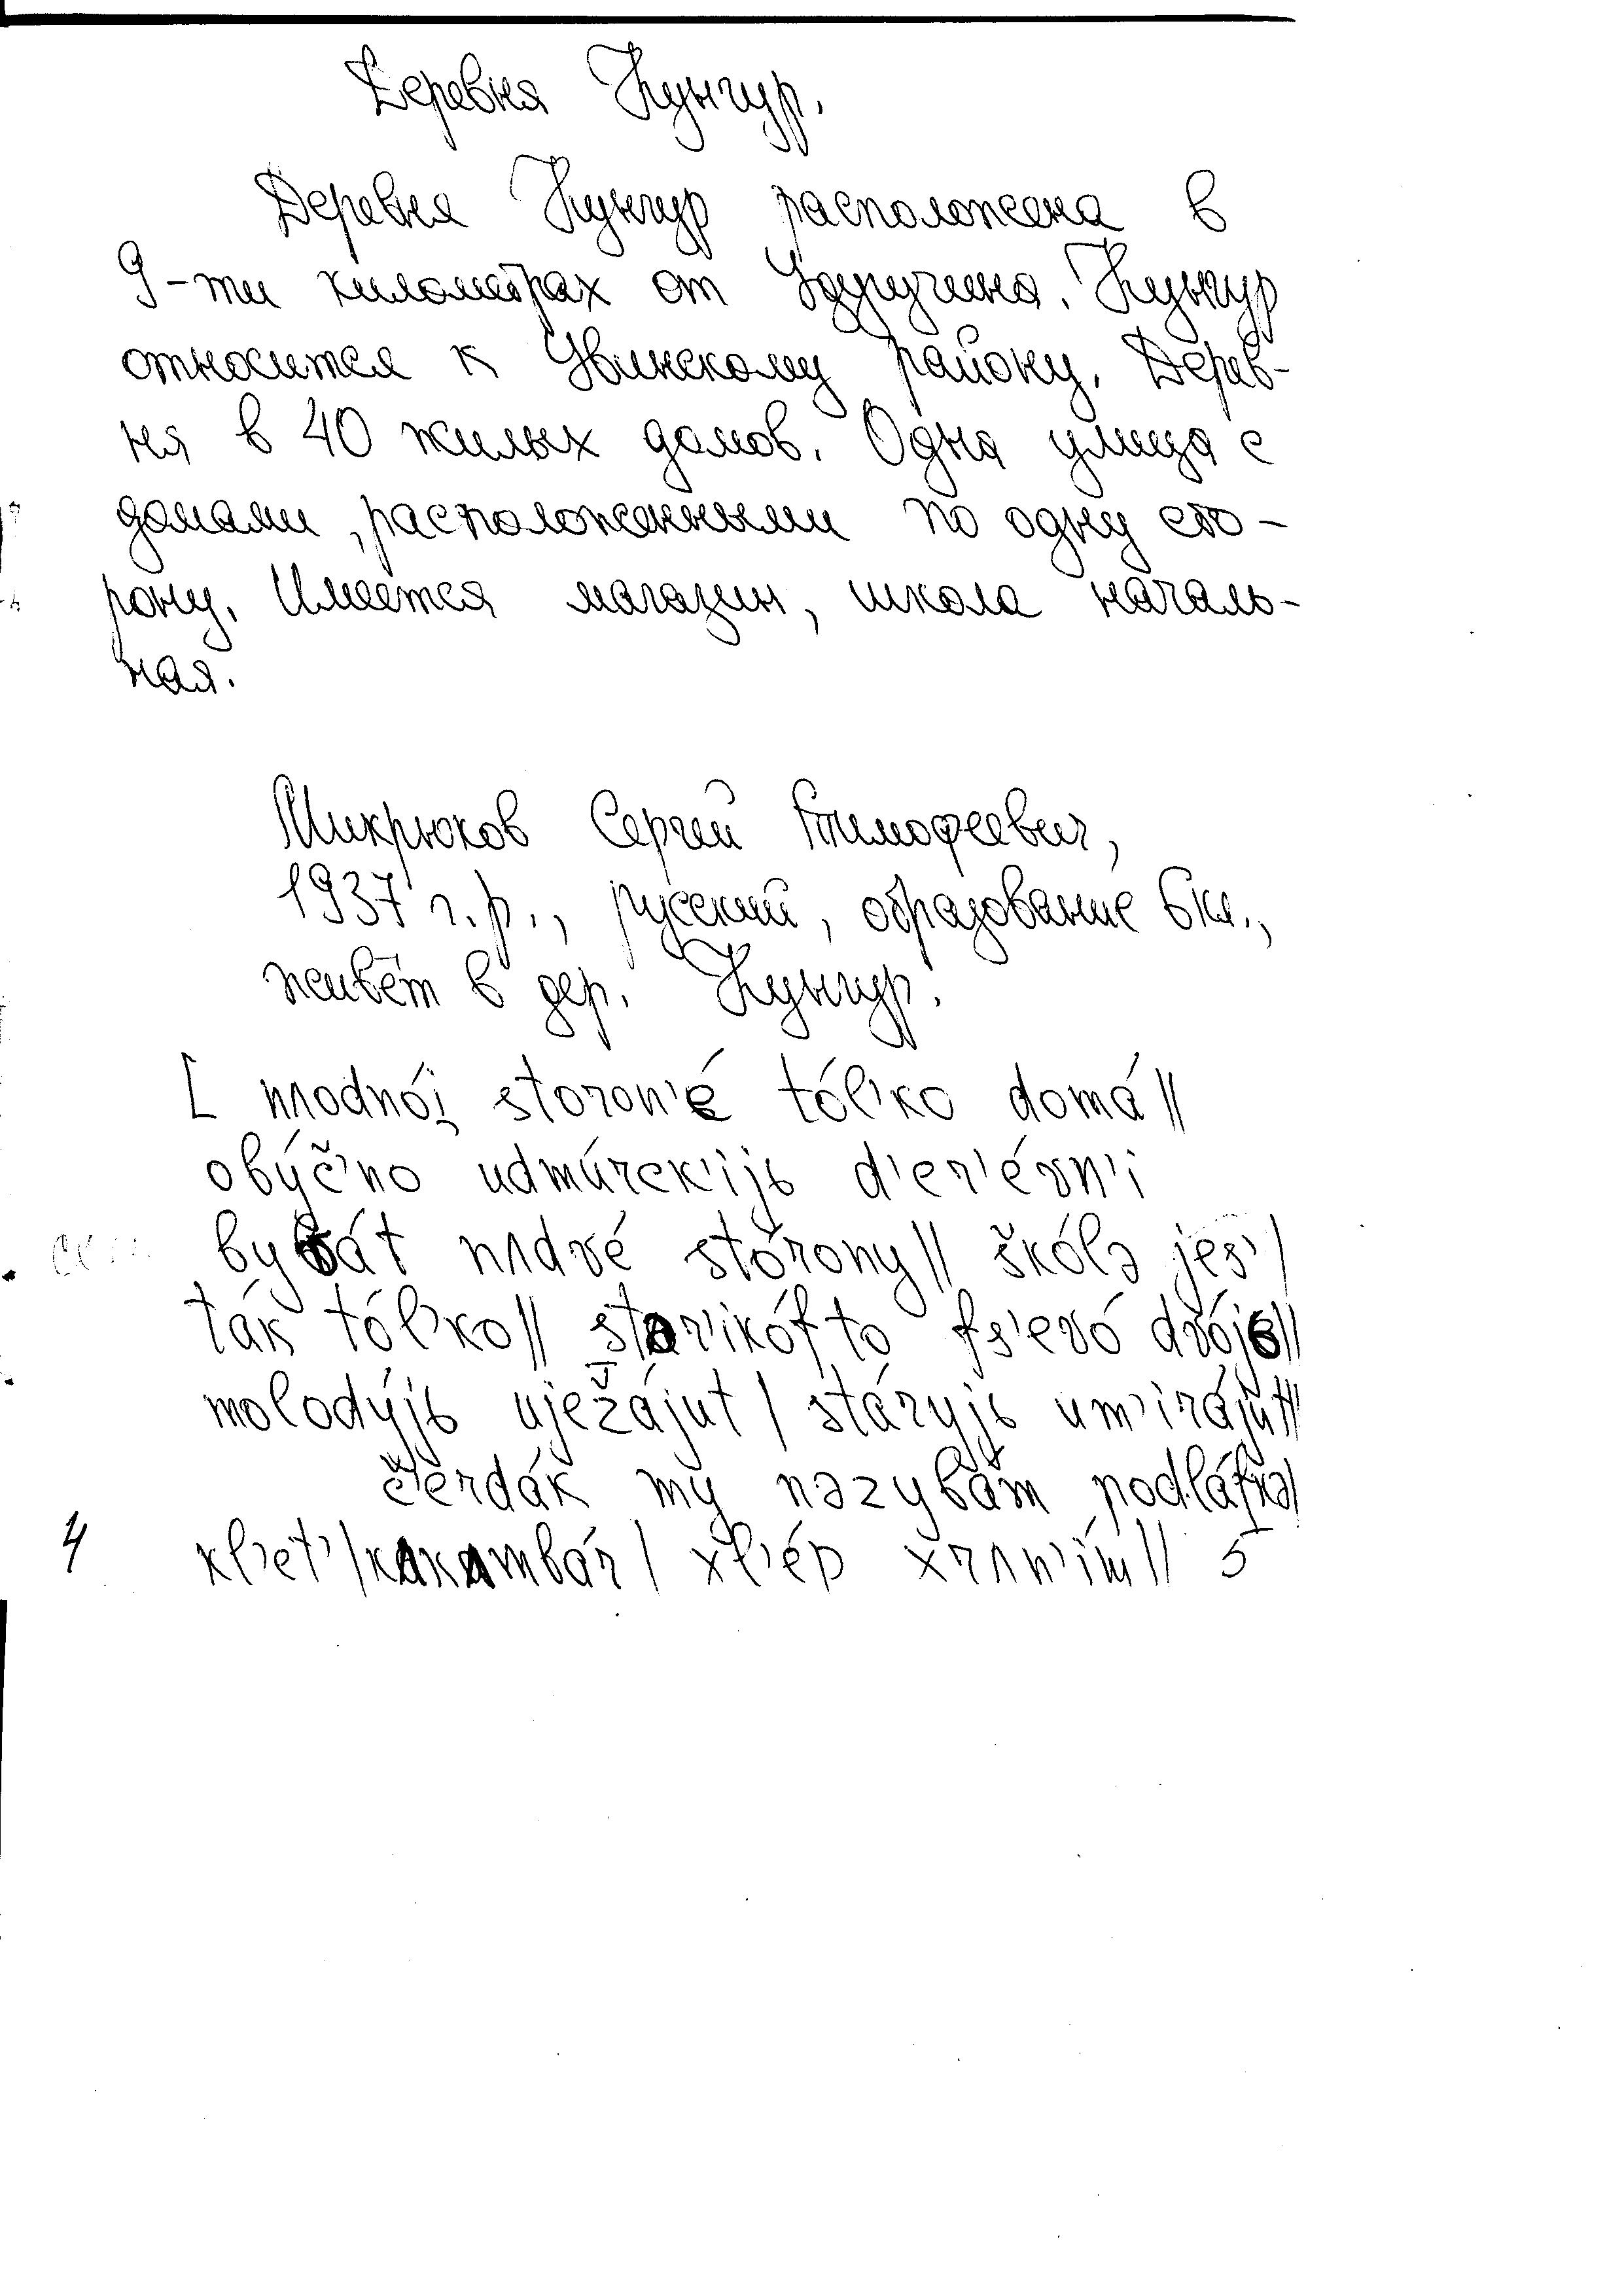 Деревня Кунгур.
Деревня Кунгур расположена в
9-ти километрах от Удугучина. Кунгур
относится к Увинскому району. Дерев-
ня в 40 жилых домов. Одна улица с
домами, расположенными по одну сто-
рону. Имеется магазин, школа началь-
ная.
Микрюков Сергей Тимофеевич,
1937 г.р., русский, образование 6 кл.,
живёт в дер. Кунгур.
[ nʌodnói̯ storon'é tól'ko domá ||
obýč'no udmúrck'ijь d'er'évn'i
byvát nʌdvé stórony || škólə jes' |
ták tól'ko || star'ikófto fs'evó dvójь ||
molodýjь uježájut | stáryjь um'irájut ||
č'erdák my nəzyvám podláfkə |
kl'et' | kʌkʌmbár | xl'ép xrʌn'ím ||
4 5